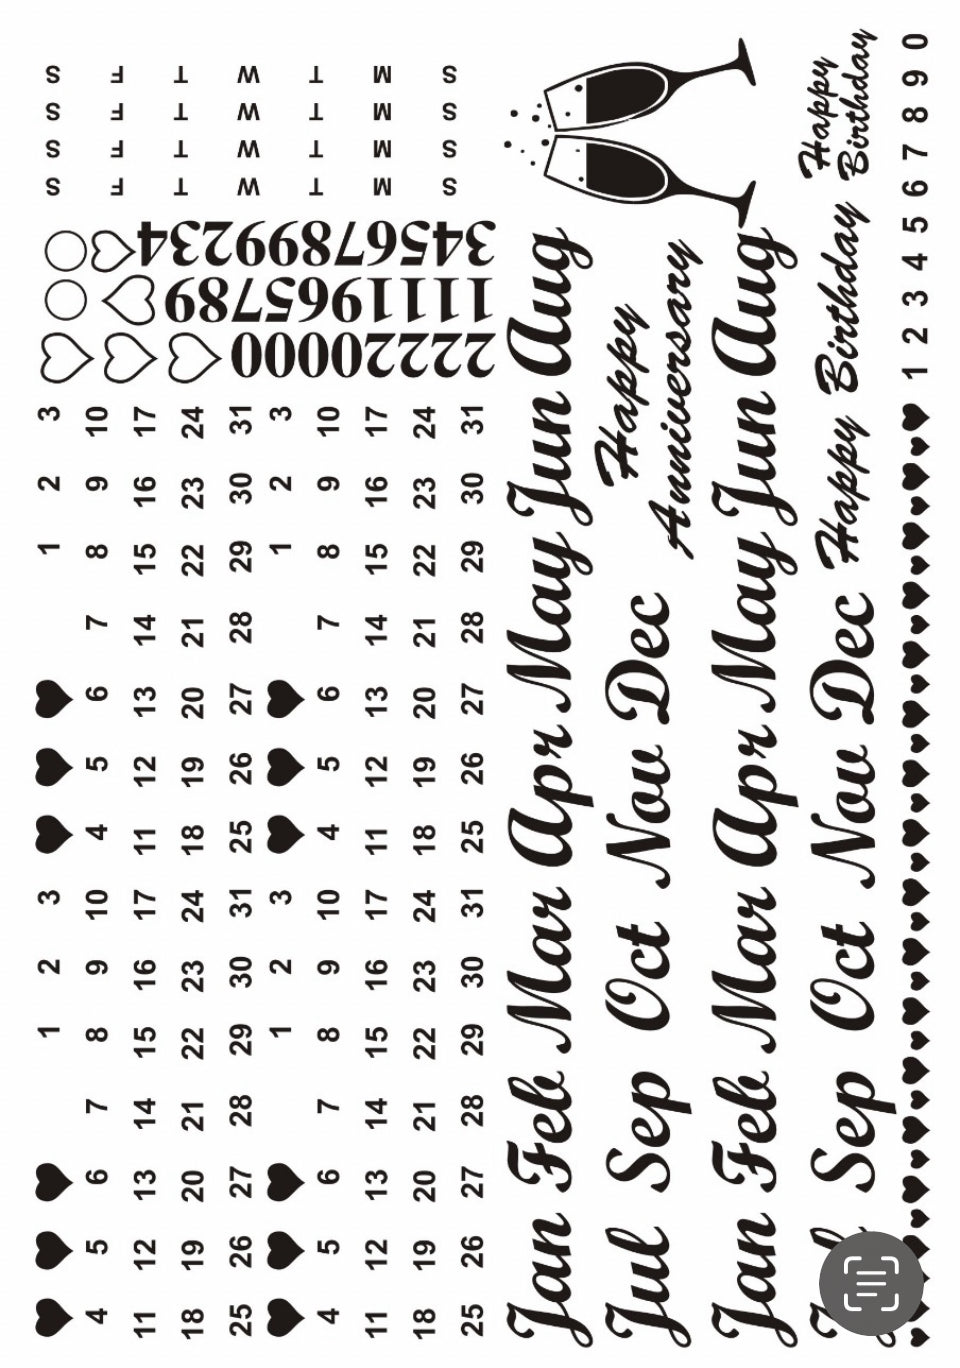 1 2 3 1 2 3
4 5 6 7 8 9 10 4 5 6 7 8 9 10
11 12 13 14 15 16 17 11 12 13 14 15 16 17
18 19 20 21 22 23 24 18 19 20 21 22 23 24
25 26 27 28 29 30 31 25 26 27 28 29 30 31
1 2 3 1 2 3
4 5 6 7 8 9 10 4 5 6 7 8 9 10
11 12 13 14 15 16 17 11 12 13 14 15 16 17
18 19 20 21 22 23 24 18 19 20 21 22 23 24
25 26 27 28 29 30 31 25 26 27 28 29 30 31
22220000
1111965789
34567899234
S M T W T F S
S M T W T F S
S M T W T F S
S M T W T F S
Jan Feb Mar Apr May Jun Aug
Jul Sep Oct Nov Dec
Happy
Anniversary
Jan Feb Mar Apr May Jun Aug
Sep Oct Nov Dec
Happy Birthday
Happy
Birthday
1 2 3 4 5 6 7 8 9 0